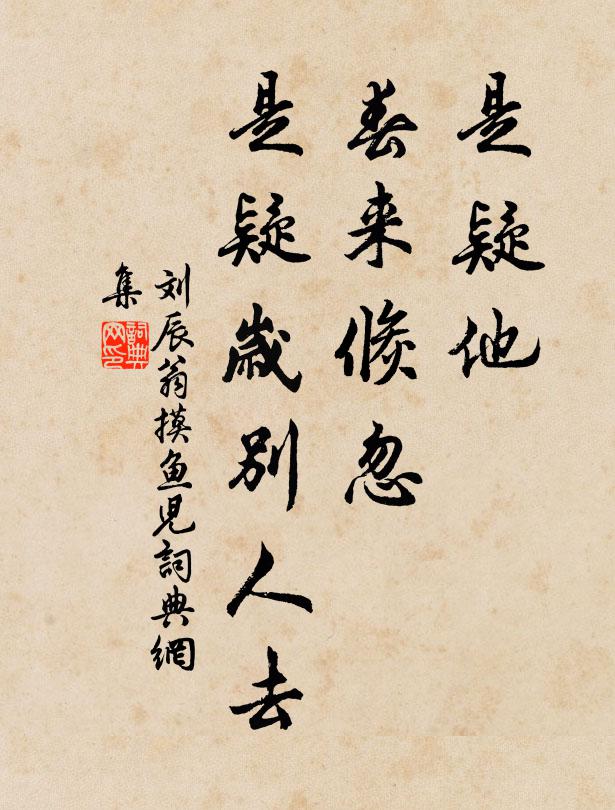 是疑他
春来倏忽
是疑歲别人去
刘辰翁摸鱼児詞典網
集
詞典网印